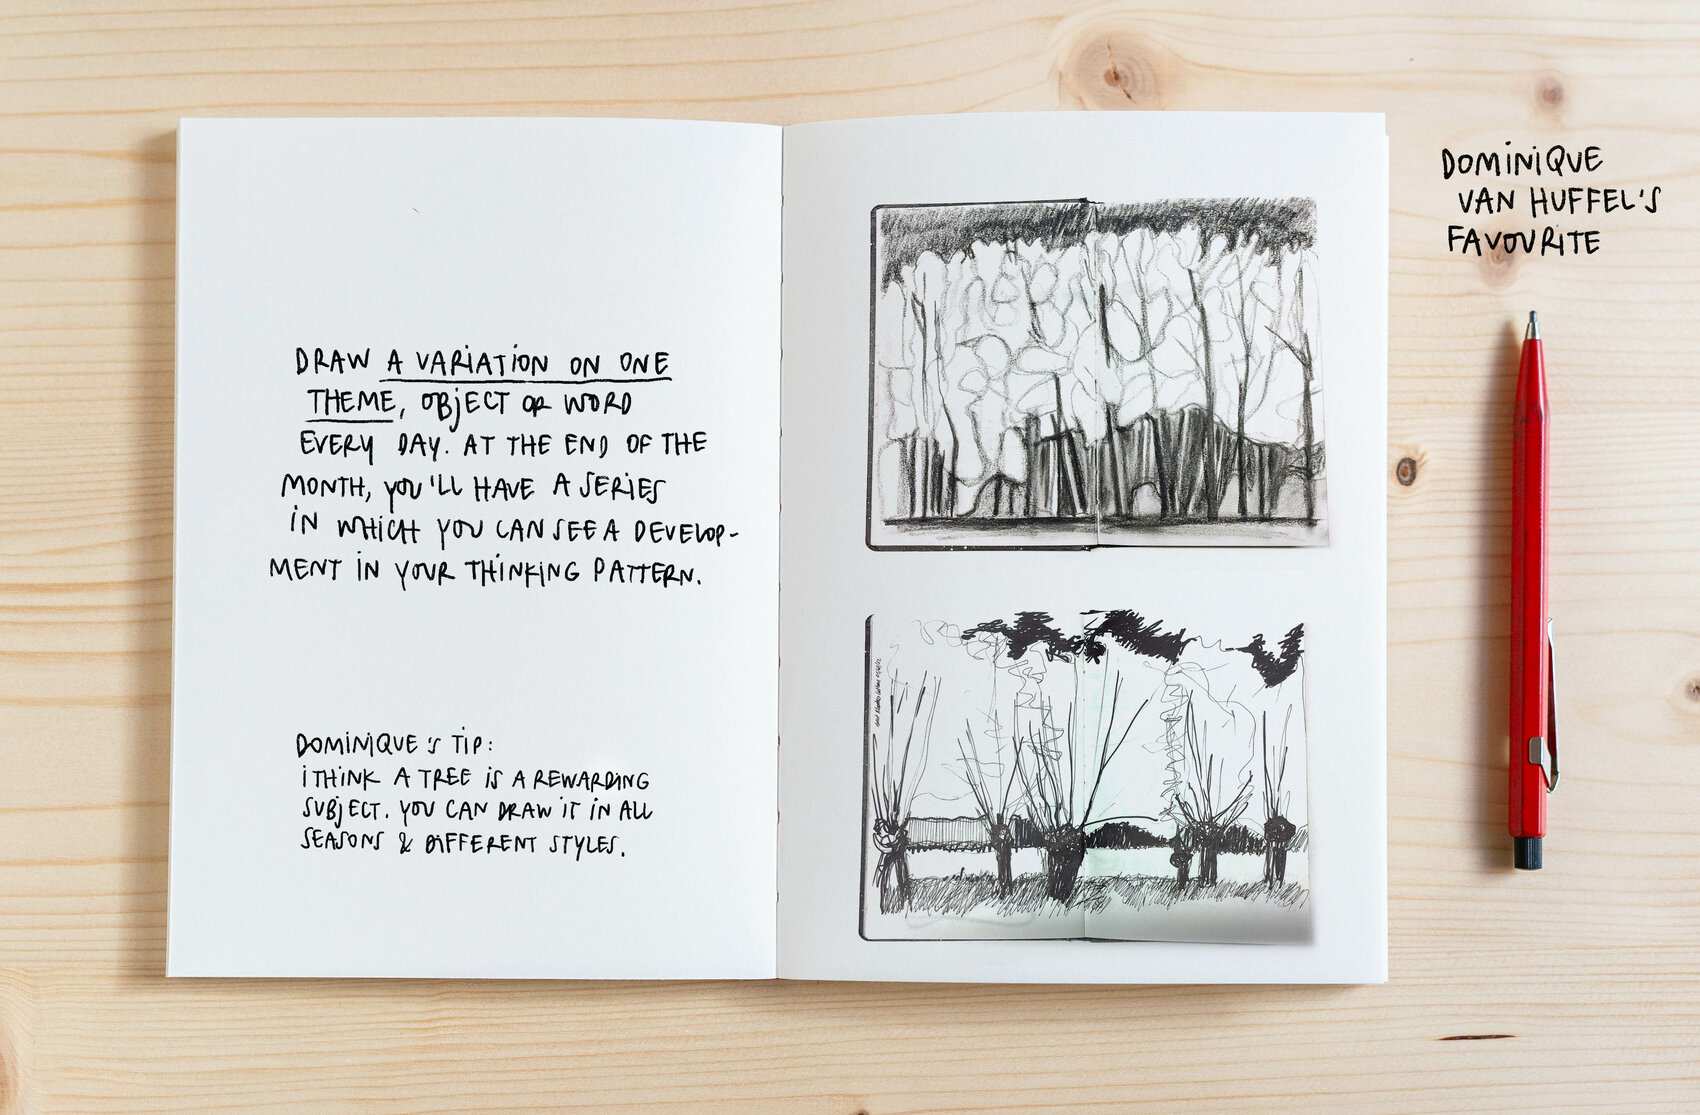 DRAW A VARIATION ON ONE
THEME, OBJECT OR WORD
EVERY DAY. AT THE END OF THE
MONTH, YOU'LL HAVE A SERIES
IN WHICH YOU CAN SEE A DEVELOP-
MENT IN YOUR THINKING PATTERN.
DOMINIQUE'S TIP:
I THINK A TREE IS A REWARDING
SUBJECT. YOU CAN DRAW IT IN ALL
SEASONS & DIFFERENT STYLES.
DOMINIQUE
VAN HUFFEL'S
FAVOURITE